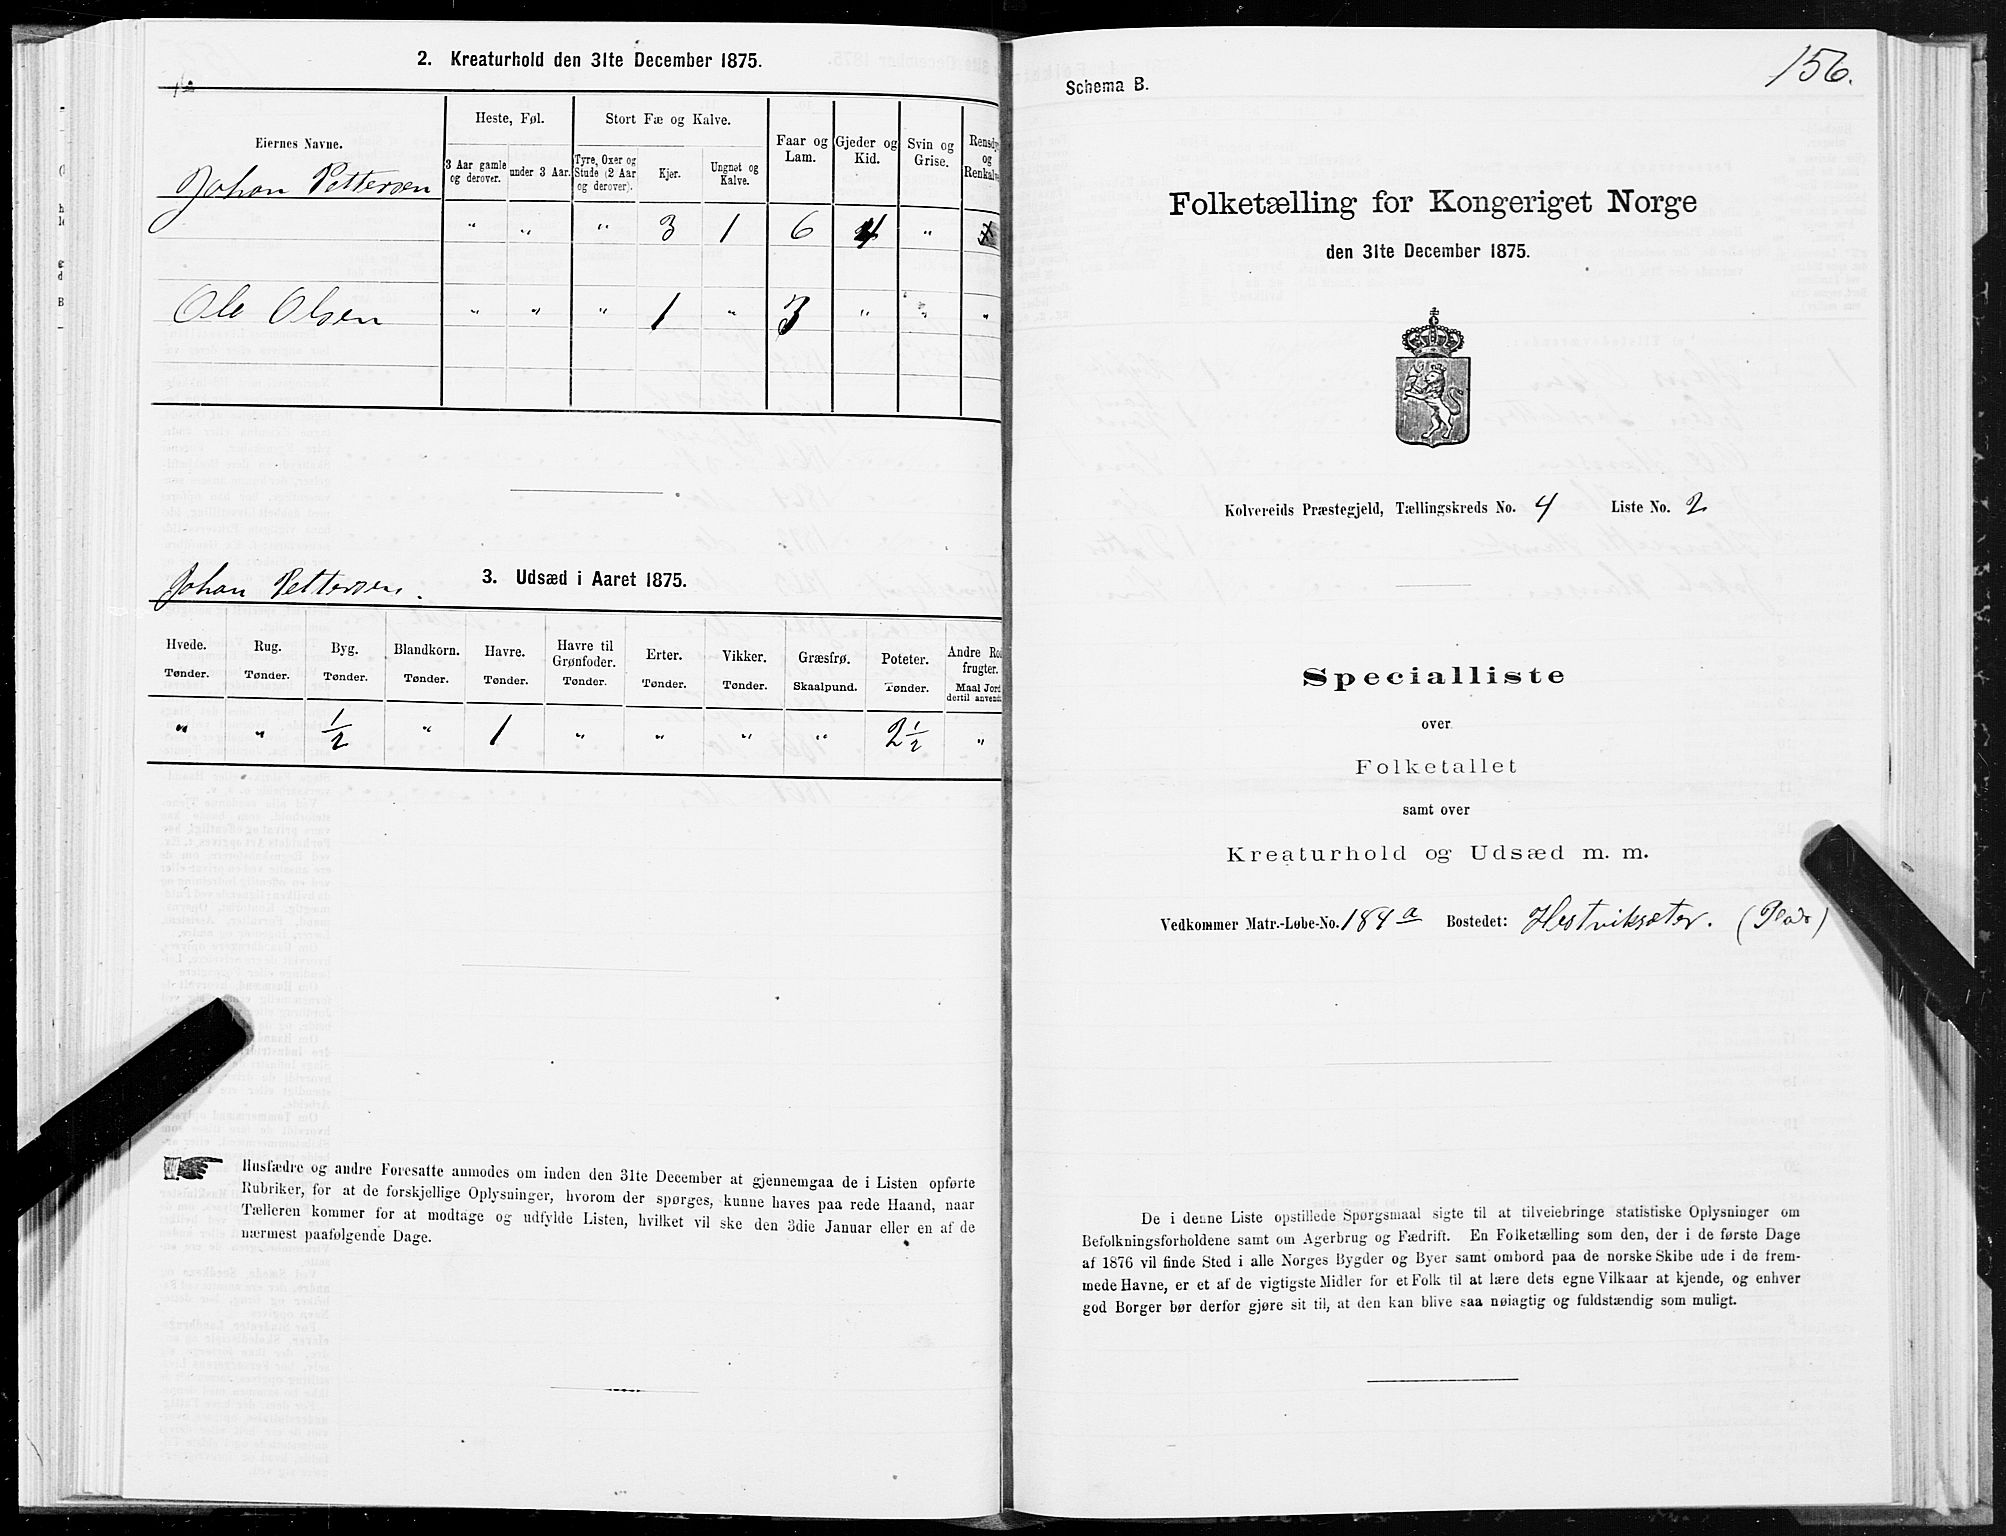 2. Kreaturhold den 31te December 1875.
Eiernes Navne.
Heste, Føl.
Stort Fæ og Kalve.
Faar og Lam.
Gjeder og Kid.
Svin og Grise.
Rensdyr og Renkalve
3 Aar gamle og derover.
under 3 Aar.
Tyre, Oxer og Stude (2 Aar og derover).
Kjer.
Ungnøt og Kalve.
Johan Pettersen
" " " 3 1 6 4 "
Ole Olsen " " " 1 " 3 " " "
3. Udsæd i Aaret 1875.
Johan Pettersen.
Hvede. Rug. Byg. Blandkorn. Havre. Havre til Grønfoder. Erter. Vikker. Græsfrø. Poteter. Andre Rodfrugter.
Tønder. Tønder. Tønder. Tønder. Tønder. Tønder. Tønder. Tønder. Skaalpund. Tønder. Maal Jord dertil anvendt
" " 1/2 " 1 " " " " 2 1/2 "
Husfædre og andre Foresatte anmodes om inden den 31te December at gjennemgaa de i Listen opførte
Rubriker, for at de forskjellige Oplysninger, hvorom der spørges, kunne haves paa rede Haand, naar
Tælleren kommer for at modtage og udfylde Listen, hvilket vil ske den 3die Januar eller en af de
nærmest paafølgende Dage.
156.
Schema B.
Folketælling for Kongeriget Norge
den 31te December 1875.
Kolvereids Præstegjeld, Tællingskreds No. 4 Liste No. 2
Specialliste
over
Folketallet
samt over
Kreaturhold og Udsæd m. m.
Vedkommer Matr.-Løbe-No. 184 a Bostedet: Hestviksæter. (Plads)
De i denne Liste opstillede Spørgsmaal sigte til at tilveiebringe statistiske Oplysninger om
Befolkningsforholdene samt om Agerbrug og Fædrift. En Folketælling som den, der i de første Dage
af 1876 vil finde Sted i alle Norges Bygder og Byer samt ombord paa de norske Skibe ude i de frem-
mede Havne, er et af de vigtigste Midler for et Folk til at lære dets egne Vilkaar at kjende, og enhver
god Borger bør derfor gjøre sit til, at den kan blive saa nøiagtig og fuldstændig som muligt.